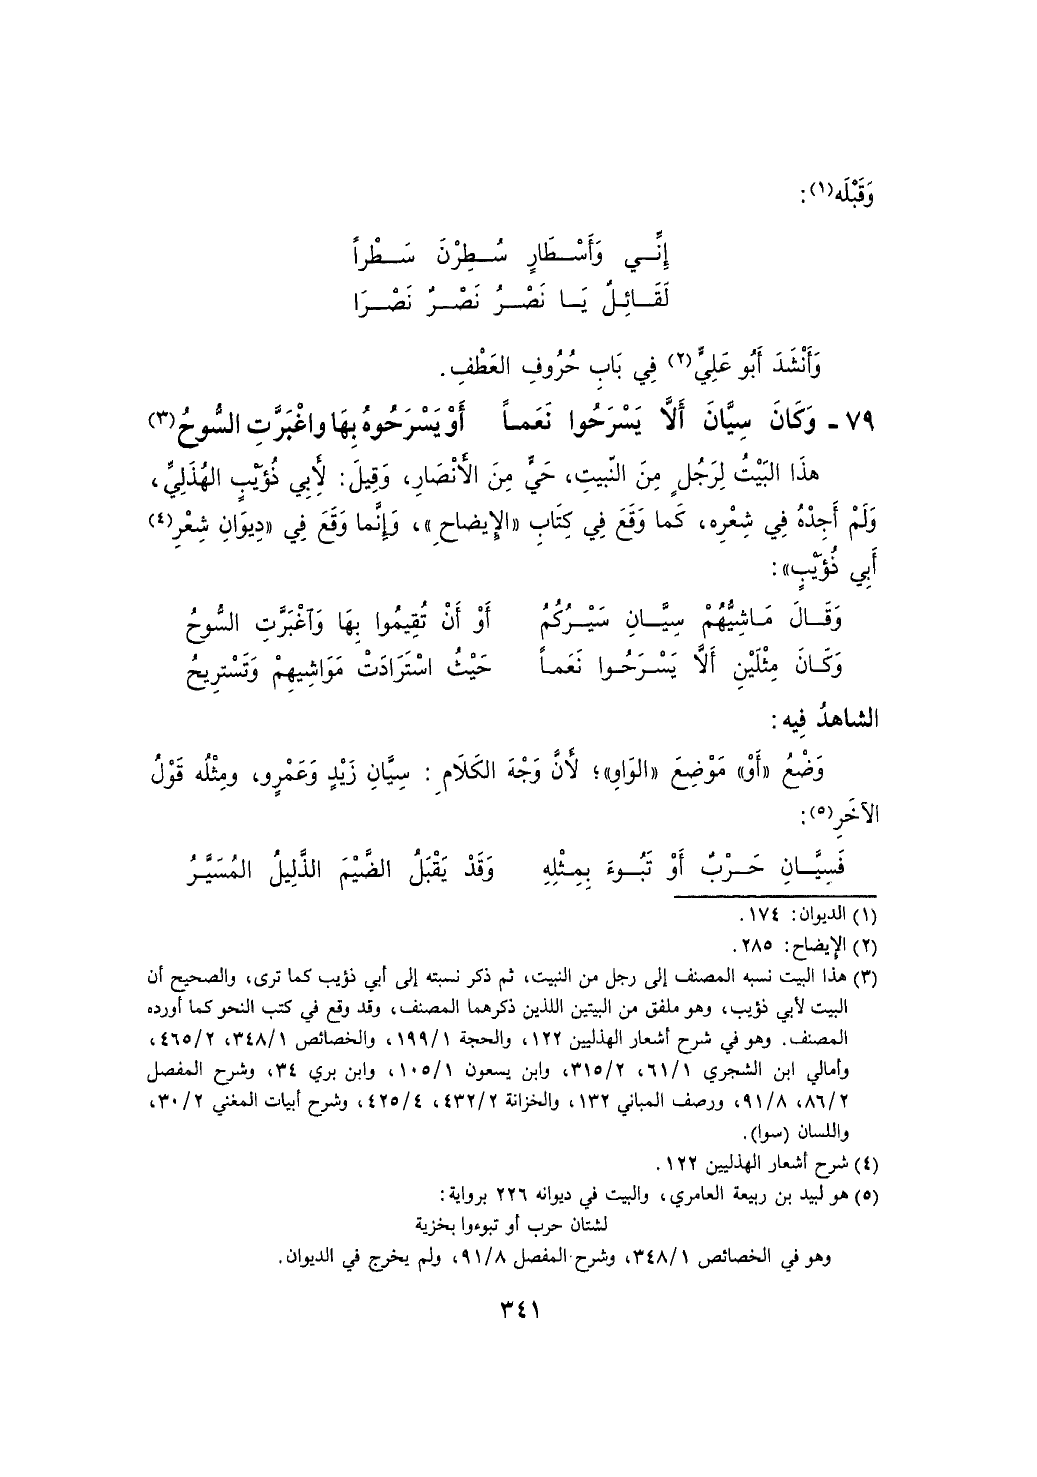 وَقَبْلَه(١):
إِنِّـي وَأَسْـطَارٍ سُـطِرْنَ سَـطْراً
لَقَـائِـلٌ يَـا نَصْـرُ نَصْـرٌ نَصْـرَا
وَأَنْشَدَ أَبُو عَلِيٍّ(٢) فِي بَابِ حُرُوفِ العَطْفِ.
٧٩ ـ وَكَانَ سِيَّانَ أَلاَّ يَسْرَحُوا نَعَمـاً أَوْ يَسْرَحُوهُ بِهَا واغْبَرَّتِ السُّوحُ(٣)
هذَا البَيْتُ لِرَجُلٍ مِنَ النَّبيتِ، حَيٍّ مِنَ الأَنْصَارِ، وَقِيلَ: لأَبِي ذُؤَيْبٍ الهُذَلِيِّ،
وَلَمْ أَجِدْهُ فِي شِعْرِه، كَما وَقَعَ فِي كِتَابِ «الإِيضاحِ»، وَإِنَّما وَقَعَ فِي «دِيوَانِ شِعْرِ(٤)
أَبِي ذُؤَيْبٍ»:
وَقَـالَ مَـاشِيُّهُمْ سِيَّـانِ سَيْـرُكُمُ أَوْ أَنْ تُقِيمُوا بِهَا وَاغْبَرَّتِ السُّوحُ
وَكَـانَ مِثْلَيْنِ أَلاَّ يَسْـرَحُـوا نَعَمـاً حَيْثُ اسْتَرَادَتْ مَوَاشِيهِمْ وَتَسْتريحُ
الشاهدُ فِيه:
وَضْعُ «أَوْ» مَوْضِعَ «الوَاوِ»؛ لأَنَّ وَجْهَ الكَلَامِ: سِيَّانِ زَيْدٍ وَعَمْرٍو، ومِثْلُه قَوْلُ
الآخَرِ(٥):
فَسِيَّـانِ حَـرْبٌ أَوْ تَبُـوءَ بِمِـثْلِهِ وَقَدْ يَقْبَلُ الضَّيْمَ الذَّلِيلُ المُسَيَّـرُ
(١) الديوان: ١٧٤.
(٢) الإيضاح: ٢٨٥.
(٣) هذا البيت نسبه المصنف إلى رجل من النبيت، ثم ذكر نسبته إلى أبي ذؤيب كما ترى، والصحيح أن
البيت لأبي ذؤيب، وهو ملفق من البيتين اللذين ذكرهما المصنف، وقد وقع في كتب النحو كما أورده
المصنف. وهو في شرح أشعار الهذليين ١٢٢، والحجة ١/‏١٩٩، والخصائص ١/‏٣٤٨، ٢/‏٤٦٥،
وأمالي ابن الشجري ١/‏٦١، ٢/‏٣١٥، وابن يسعون ١/‏١٠٥، وابن بري ٣٤، وشرح المفصل
٢/‏٨٦، ٨/‏٩١، ورصف المباني ١٣٢، والخزانة ٢/‏٤٣٢، ٤/‏٤٢٥، وشرح أبيات المغني ٢/‏٣٠،
واللسان (سوا).
(٤) شرح أشعار الهذليين ١٢٢.
(٥) هو لبيد بن ربيعة العامري، والبيت في ديوانه ٢٢٦ برواية:
لشتان حرب أو تبوءوا بخزية
وهو في الخصائص ١/‏٣٤٨، وشرح المفصل ٨/‏٩١، ولم يخرج في الديوان.
٣٤١